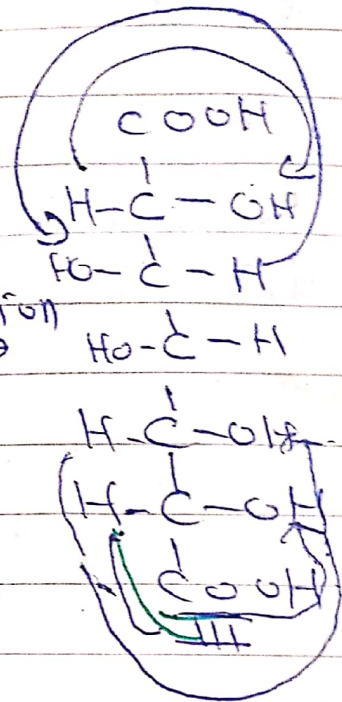 COOH
H-C-OH
HO-C-H
HO-C-H
H-C-OH
H-C-OH
COOH
III